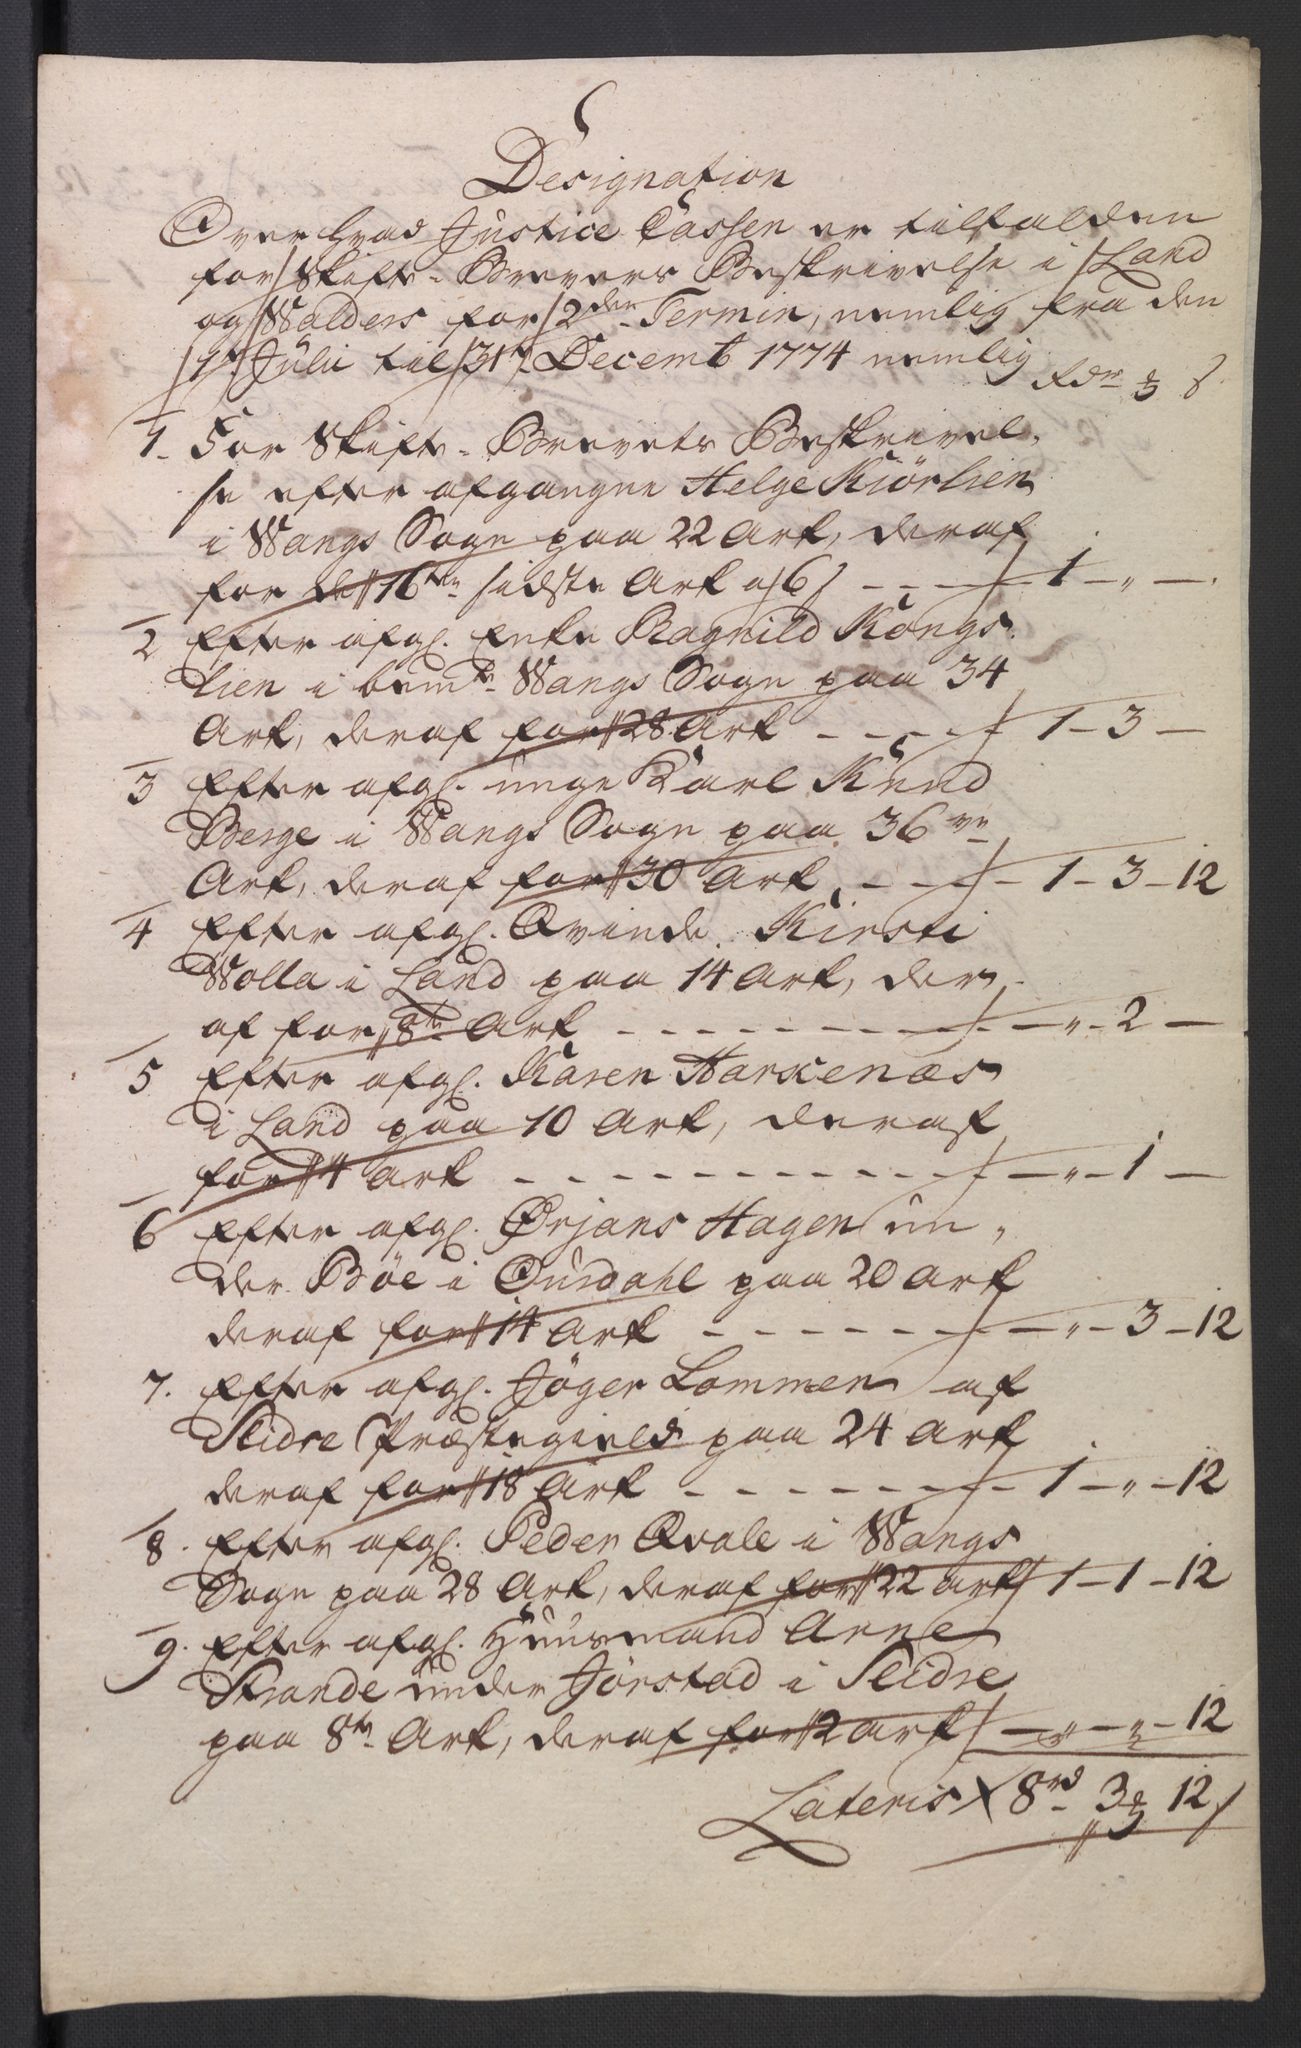 Designation
Over hvad Justice Cassen er tilfalden
for Skifte-Brevers Beskrivelse i Land
og Walders for 2den Termin, nemlig fra den
1ste Julii til 31te Decemb 1774 nemlig
Rdr ß
1. For Skifte-Brevets Beskrivel-
se efter afgangne Helge Kiörlien
i Wangs Sogn paa 22 Ark, deraf
for de 16ten sidste Ark a 6 ß - - - 1 - " -
2 Efter afg. Enke Ragnild Kongs-
lien i bemte Wangs Sogn paa 34
Ark, deraf for 28 Ark - - - - 1 - 3 -
3 Efter afg. unge Karl Knud
Berge i Wangs Sogn paa 36ve
Ark, deraf for 30 Ark - - - 1 - 3 - 12
4 Efter afg. Qvinde Kirsti
Wolla i Land paa 14 Ark, der-
af for 8te Ark - - - - - - " - 2 -
5 Efter afg. Karen Harxenæs
i Land paa 10 Ark, deraf
for 4 Ark - - - - - - - " - 1 -
6 Efter afg. Ørjans Hagen un-
der Böe i Ourdahl paa 20 Ark
deraf for 14 Ark - - - - - - " - 3 - 12
7. Efter afg. Jöger Lommen af
Slidre Præstegield paa 24 Ark
deraf for 18 Ark - - - - - - 1 - " - 12
8. Efter afg. Peder Qvale i Wangs
Sogn paa 28 Ark, deraf for 22 ark 1 - 1 - 12
9. Efter afg. Huusmand Arne
Strande under Jörstad i Slidre
paa 8te Ark, deraf for 2 ark - " - " - 12
Lateris 8rd 3 12